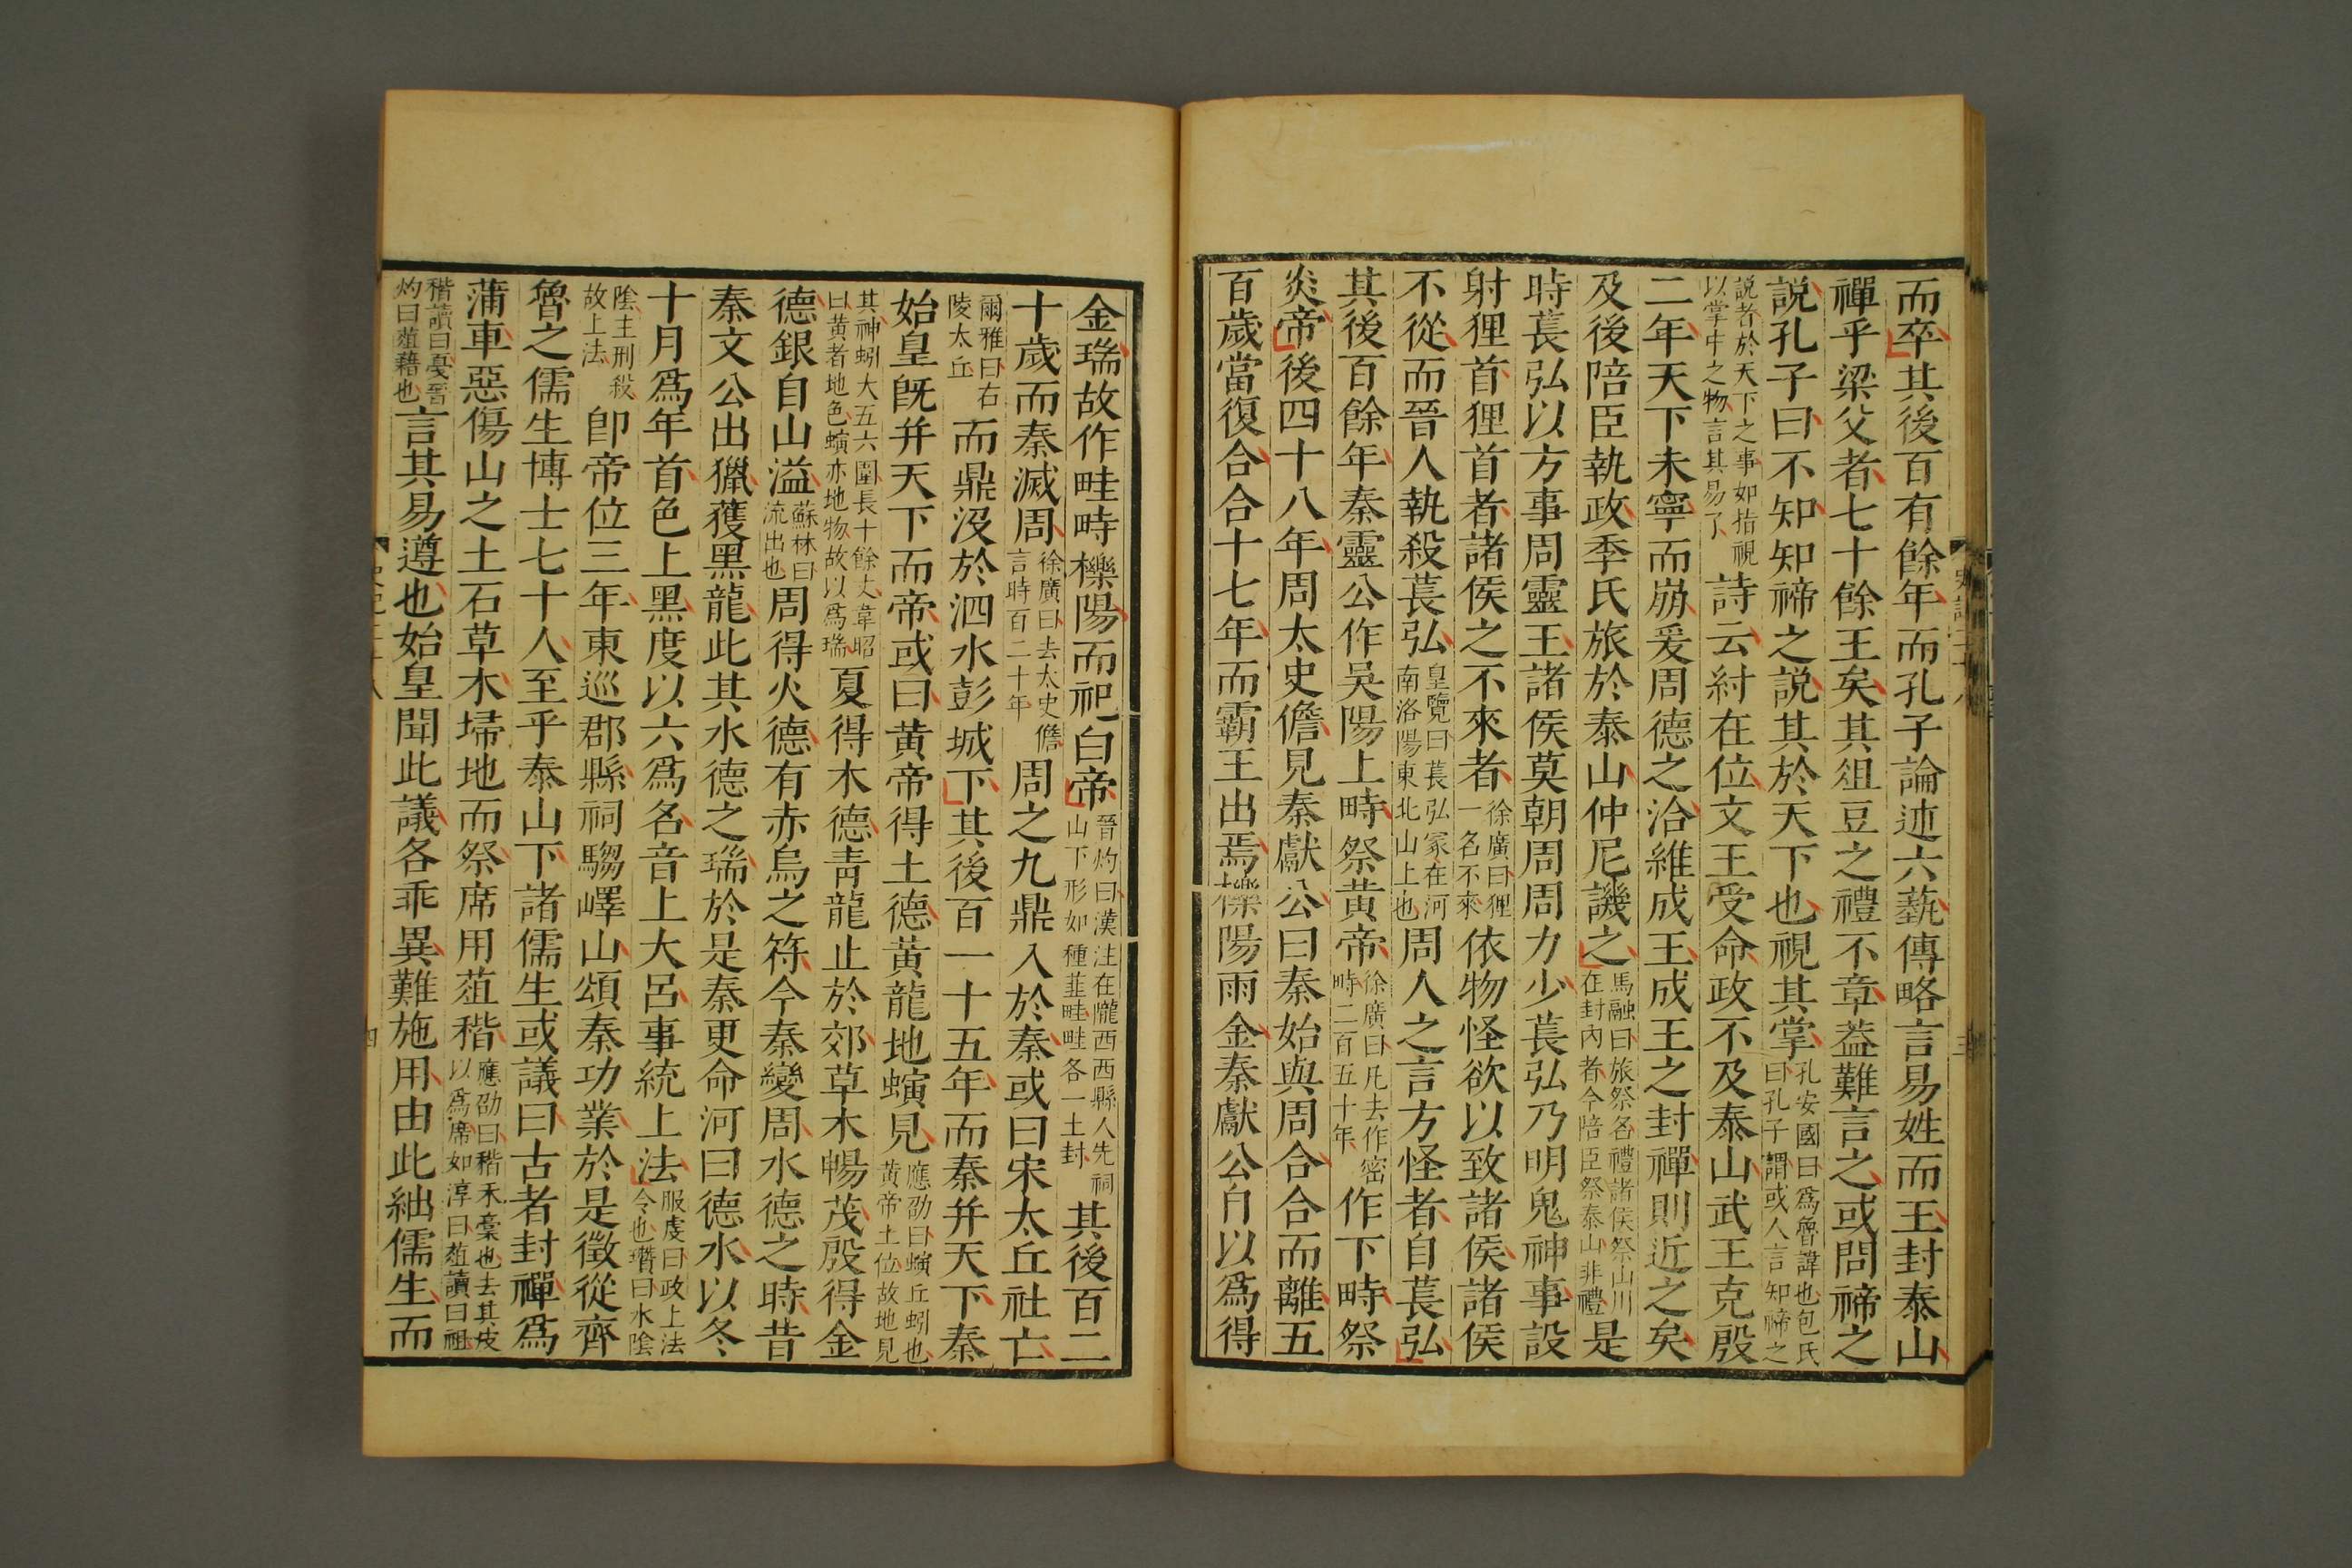 而卒其後百有餘年而孔子論述六蓺傳略言易姓而王封泰山
禪乎梁父者七十餘王矣其俎豆之禮不章葢難言之或問禘之
說孔子曰不知知禘之說其於天下也視其掌孔安國曰爲魯諱也包氏曰孔子謂或人言知禘之
說者於天下之事如指視以掌中之物言其易了詩云紂在位文王受命政不及泰山武王克殷
二年天下未寧而崩爰周德之洽維成王成王之封禪則近之矣
及後陪臣執政季氏旅於泰山仲尼譏之馬融曰旅祭名禮諸侯祭山川在封內者今陪臣祭泰山非禮是
時萇弘以方事周靈王諸侯莫朝周周力少萇弘乃明鬼神事設
射狸首狸首者諸侯之不來者徐廣曰狸一名不來依物怪欲以致諸侯諸侯
不從而晉人執殺萇弘皇覽曰萇弘冢在河南洛陽東北山上也周人之言方怪者自萇弘
其後百餘年秦靈公作吳陽上畤祭黃帝徐廣曰凡去作密畤二百五十年作下畤祭
炎帝後四十八年周太史儋見秦獻公曰秦始與周合合而離五
百歲當復合合十七年而霸王出焉櫟陽雨金秦獻公自以爲得
金瑞故作畦畤櫟陽而祀白帝晉灼曰漢注在隴西西縣人先祠山下形如種韮畦畦各一土封其後百二
十歲而秦滅周徐廣曰去太史儋言時百二十年周之九鼎入於秦或曰宋太丘社亡
爾雅曰右陵太丘而鼎沒於泗水彭城下其後百一十五年而秦并天下秦
始皇旣并天下而帝或曰黃帝得土德黃龍地螾見應劭曰螾丘蚓也黃帝土位故地見
其神蚓大五六圍長十餘丈韋昭曰黃者地色螾亦地物故以爲瑞夏得木德靑龍止於郊草木暢茂殷得金
德銀自山溢蘇林曰流出也周得火德有赤烏之符今秦變周水德之時昔
秦文公出獵獲黑龍此其水德之瑞於是秦更命河曰德水以冬
十月爲年首色上黑度以六爲名音上大呂事統上法服虔曰政上法令也瓚曰水陰
陰主刑殺故上法卽帝位三年東巡郡縣祠騶嶧山頌秦功業於是徵從齊
魯之儒生博士七十人至乎泰山下諸儒生或議曰古者封禪爲
蒲車惡傷山之土石草木埽地而祭席用葅稭應劭曰稭禾稾也去其皮以爲席如淳曰葅讀曰租
稭讀曰戞晉灼曰葅藉也言其易遵也始皇聞此議各乖異難施用由此絀儒生而